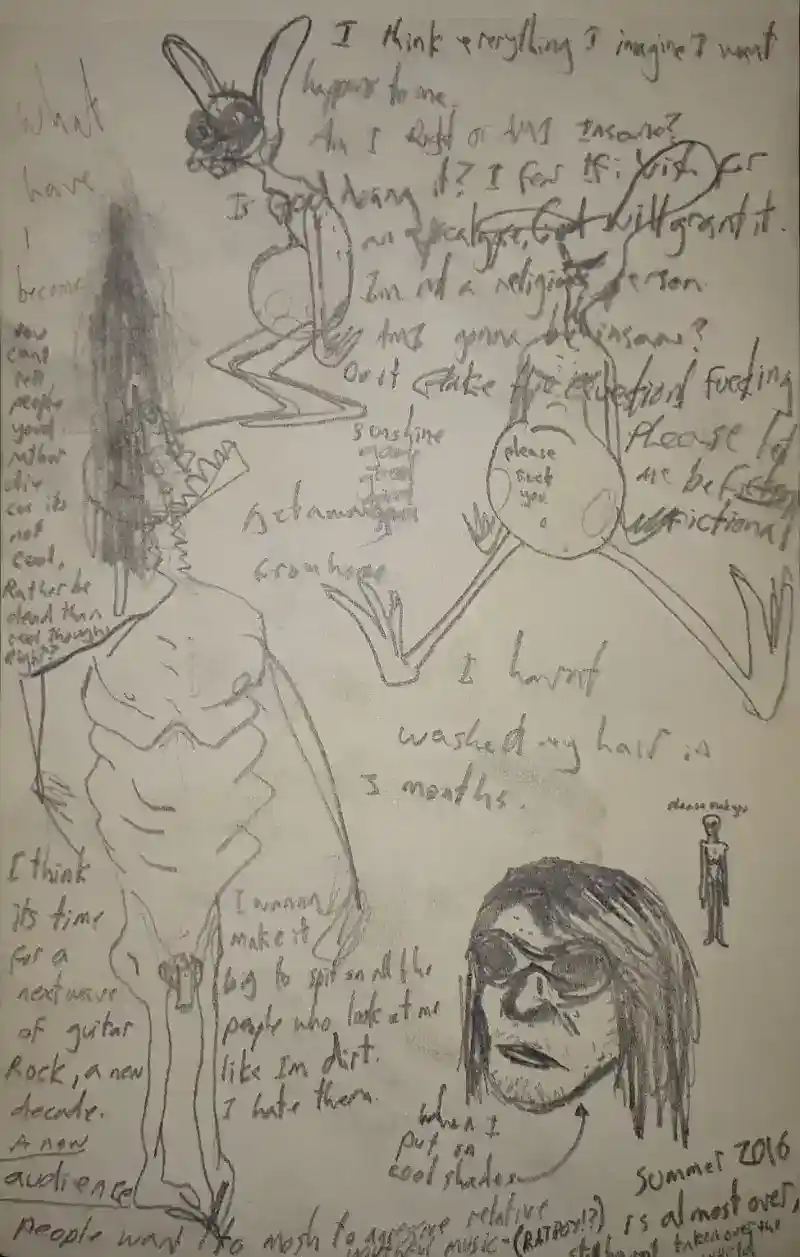 I think everything I imagine I want
happens to me.
Am I Right or AM I Insane?
Is God doing it? I fear If i wish for
an apocalypse, God will grant it.
Im not a religious person
AmI gonna be insane?
Or it
Fueling
Please let
me be
fictional
what
have
I
become
You
cant
tell
people
youd
rather
die
cos its
not
cool,
Rather be
dead than
cool though
Right??
sunshine
please
suck
you
from home
I havnt
washed my hair in
3 months.
please
I think
its time
for a
next wave
of guitar
Rock, a new
decade.
A new
audience
I wanna
make it
big to spit on all the
people who look at me
like Im dirt.
I hate them.
when I
put on
cool shades
Summer 2016
is almost over,
people want to mosh to agressive relative
music-(RATBOY!?)
still havent taken over the